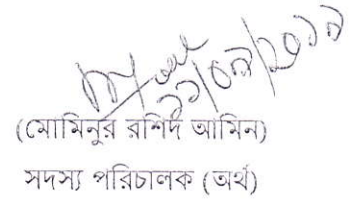 ১১/০৯/২০১৯
(মোমিনুর রশিদ আমিন)
সদস্য পরিচালক (অর্থ)